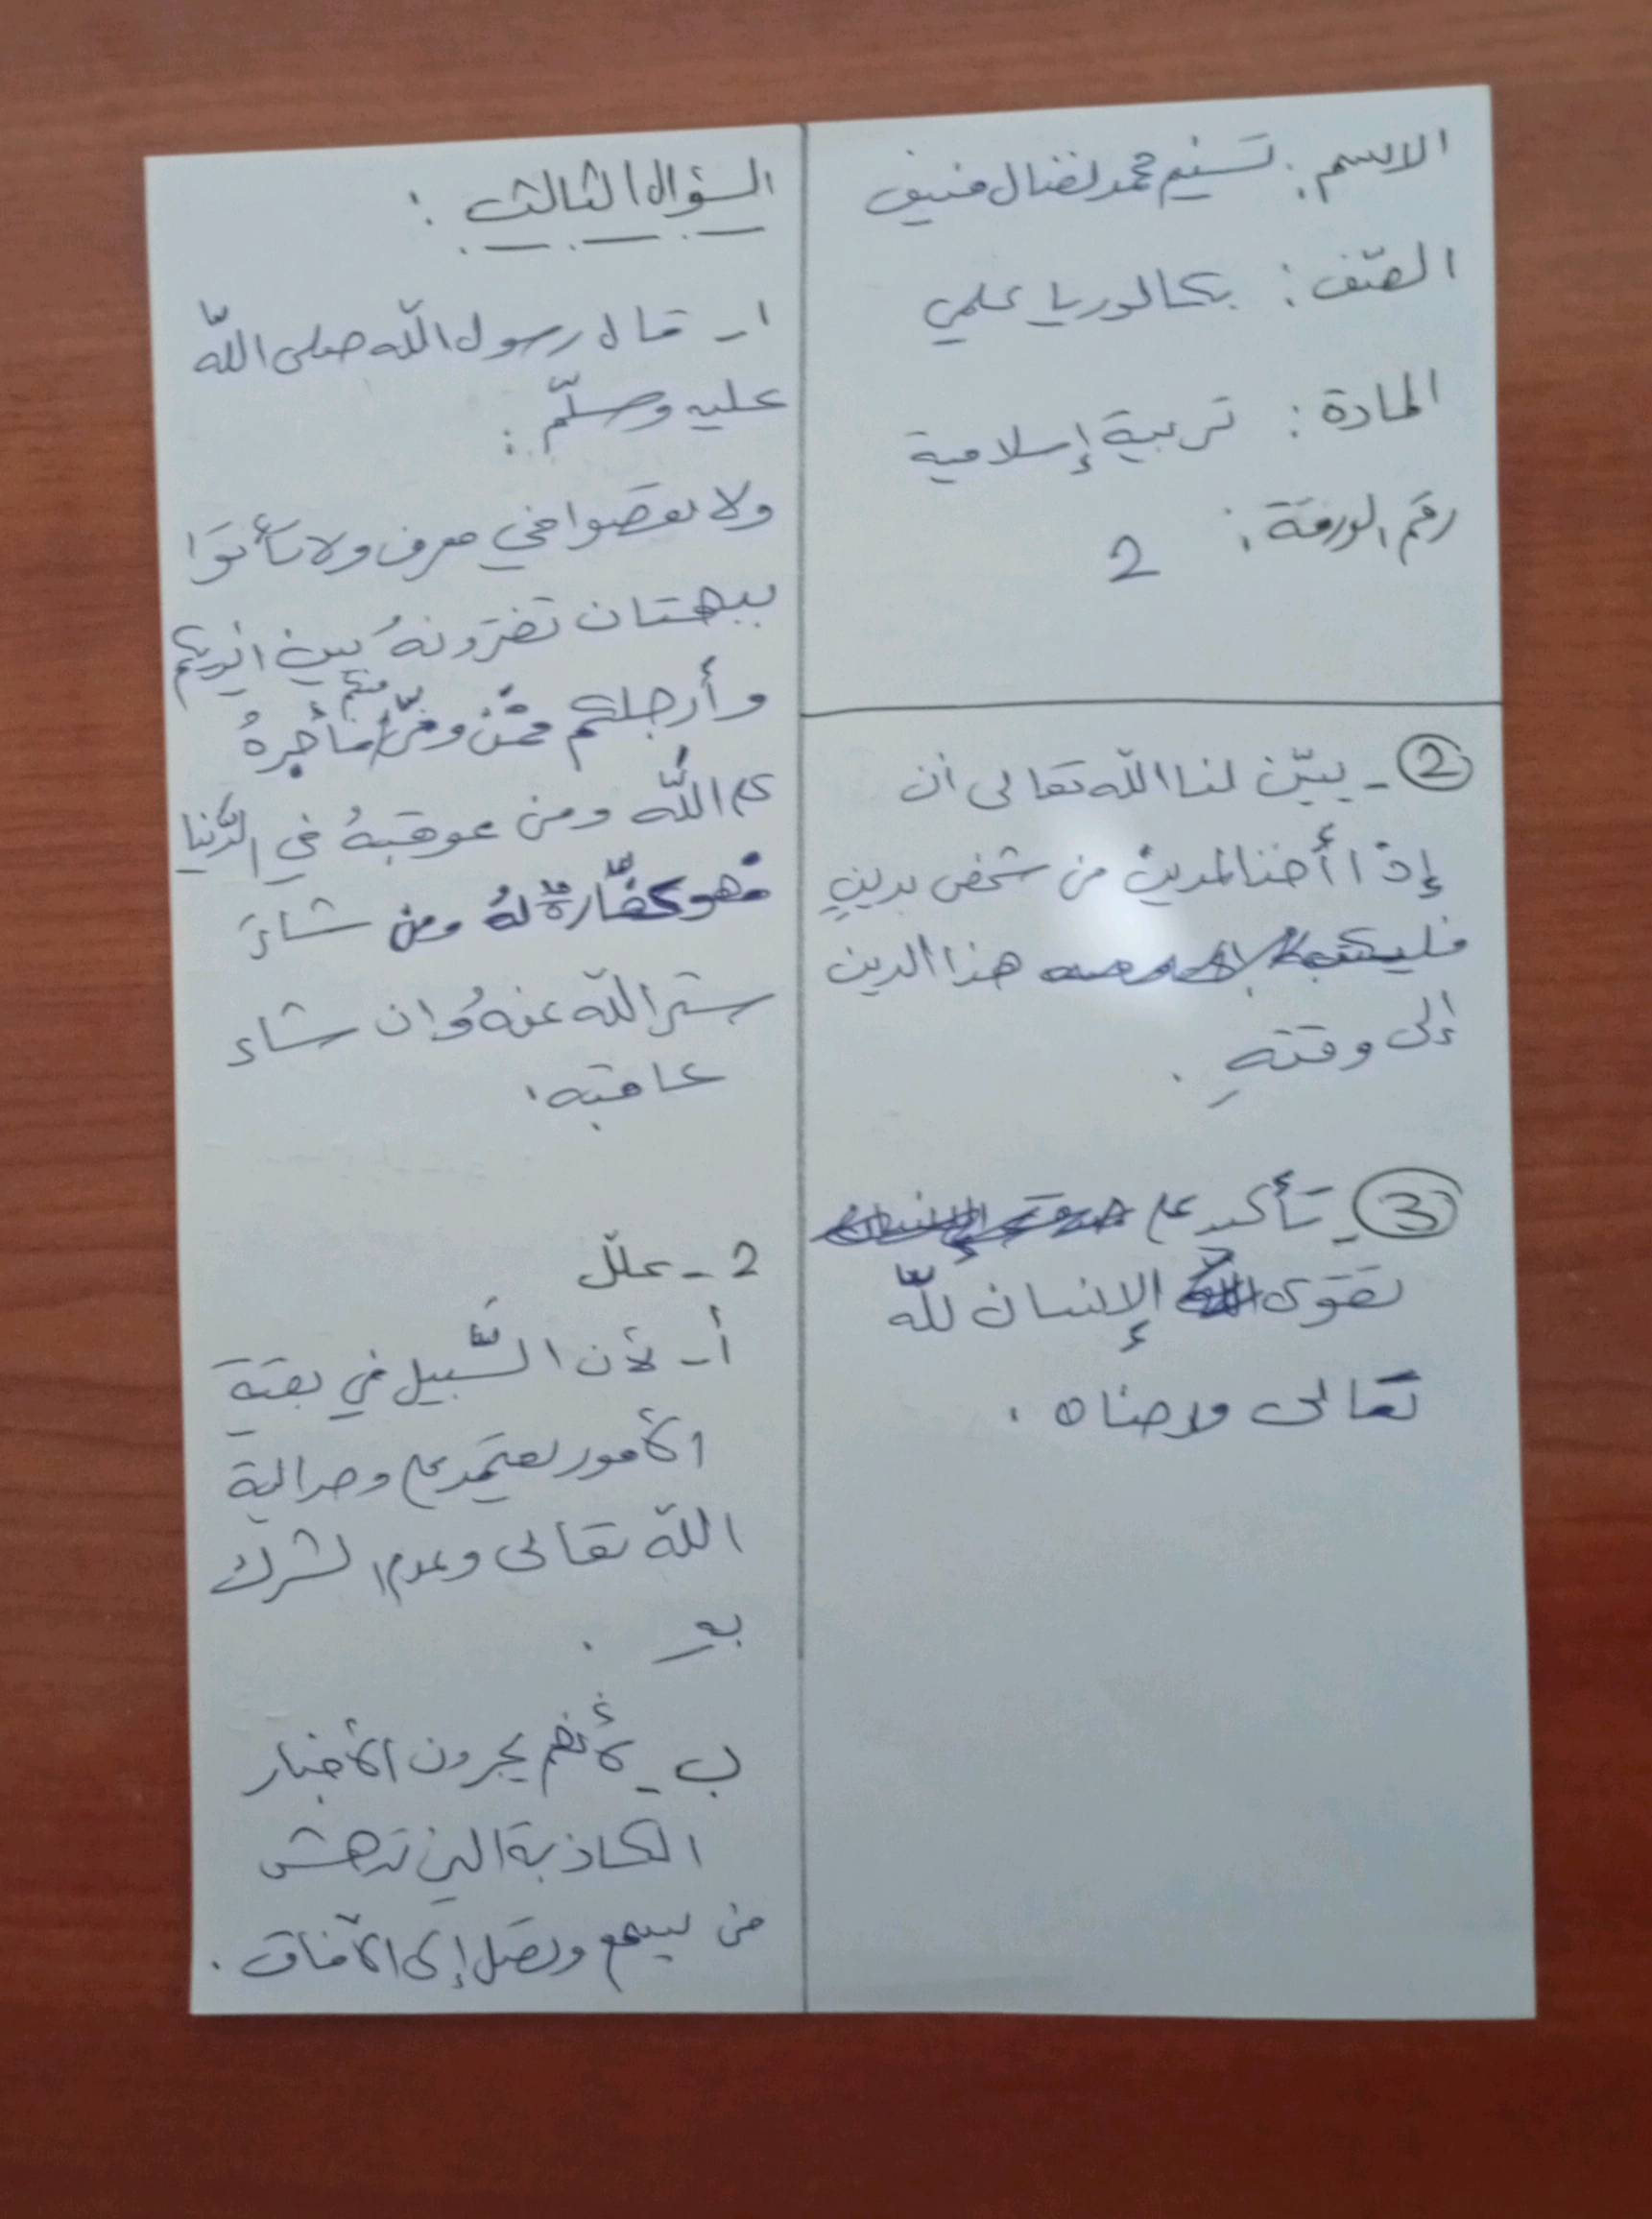 الاسم: تسنيم محمد نضال منيف
الصّف: بكالوريا علمي
المادة: تربية إسلامية
رقم الورقة: 2
2- يبيّن لنا اللّه تعالى أن
إذا أخذنا لمدين من شخص بدينٍ
فليكتب هذا الدين
إلى وقتهِ.
3- تأكيد على
تقوى الإنسان للّه
تعالى ورضاه.
السؤال الثالث:
1- قال رسول اللّه صلى اللّه
عليه وسلّم:
ولا تعصوا في معرف ولا تأتوا
ببهتان تفترونهُ بين أيديكم
وأرجلكم فمن وفّى منكم فأجرهُ
على اللّه ومن عوقبهُ في الدّنيا
فهو كفّارة لهُ ومن شاءَ
ستر اللّه عنهُ وإن شاء
عاقبه.
2- علّل
أ- لأن السَّبيل في بقية
الأمور يعتمد على وحدانية
اللّه تعالى وعدم الشرك
به.
ب- لأنهم يجرون الأخبار
الكاذبة التي تدهش
من يسمع وتصل إلى الآفاق.